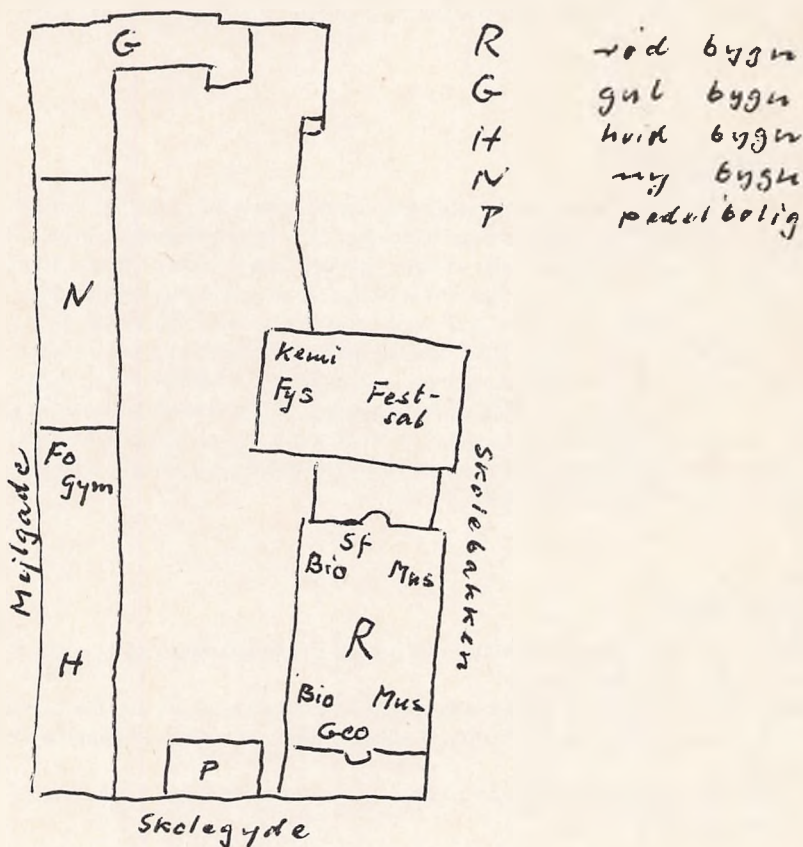 G
R rød bygn
G gul bygn
H hvid bygn
N ny bygn
P pedelbolig
N
Kemi
Fys Fest-
sal
Fo
Gym
Mejlgade
Skolebakken
Sf
Bio Mus
R
H
Bio Mus
Geo
P
Skolegyde